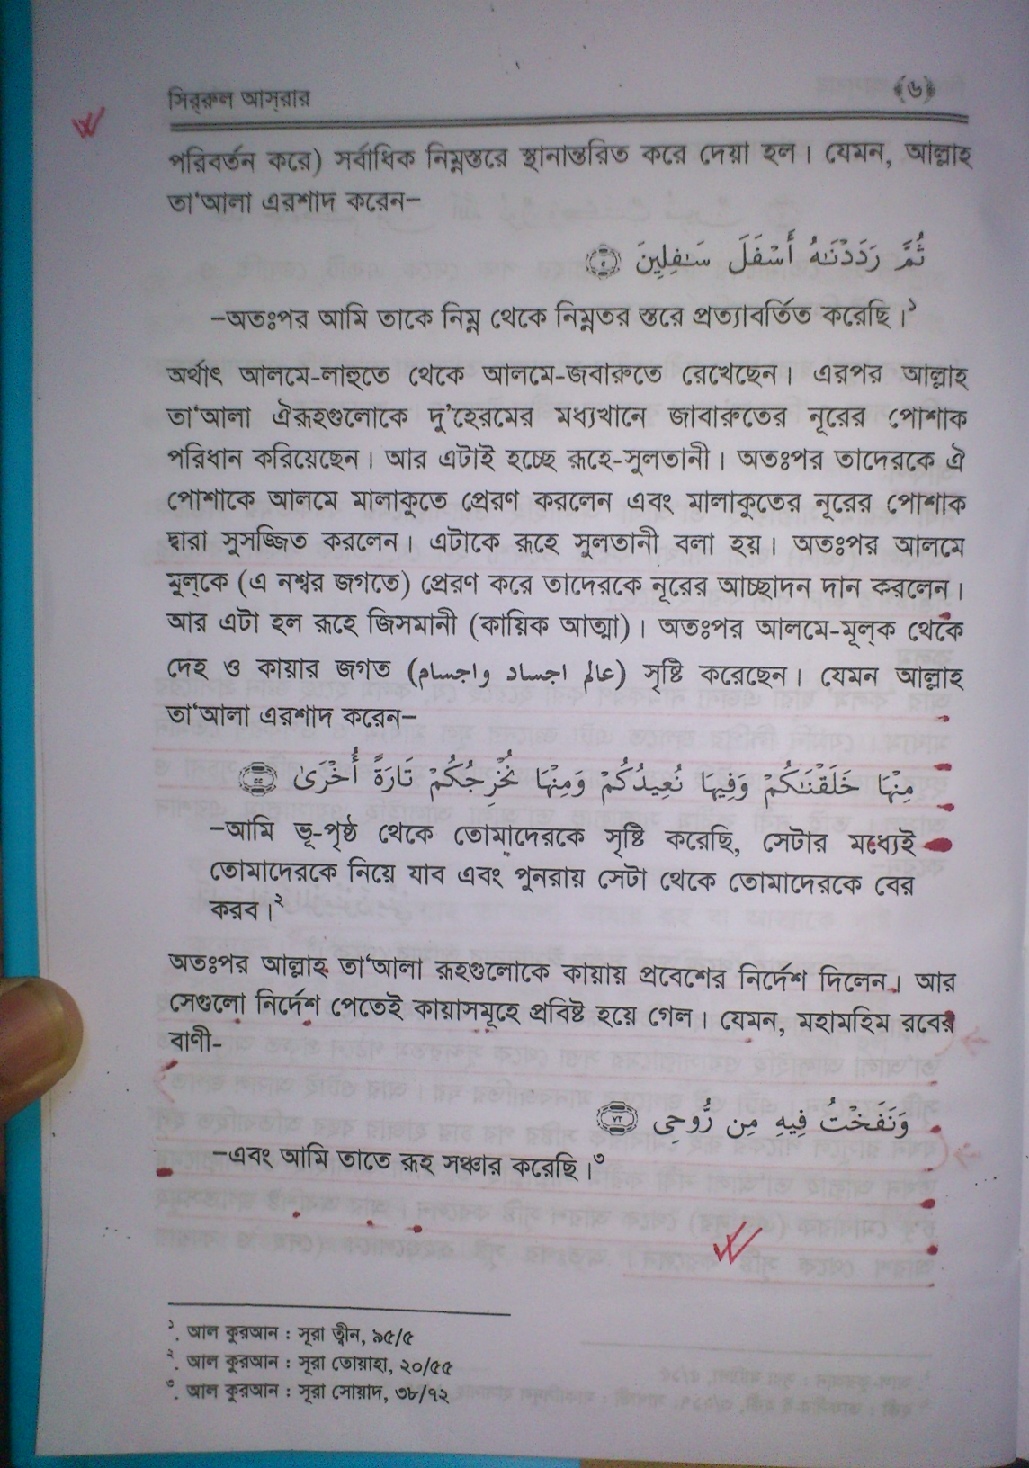 সিররুল আসরার
﴾৬﴿
পরিবর্তন করে) সর্বাধিক নিম্নস্তরে স্থানান্তরিত করে দেয়া হল। যেমন, আল্লাহ
তা'আলা এরশাদ করেন–
ثُمَّ رَدَدْنَـٰهُ أَسْفَلَ سَـٰفِلِينَ
–অতঃপর আমি তাকে নিম্ন থেকে নিম্নতর স্তরে প্রত্যাবর্তিত করেছি।১
অর্থাৎ আলমে-লাহুতে থেকে আলমে-জবারুতে রেখেছেন। এরপর আল্লাহ
তা'আলা ঐরূহগুলোকে দু'হেরমের মধ্যখানে জাবারুতের নূরের পোশাক
পরিধান করিয়েছেন। আর এটাই হচ্ছে রূহে-সুলতানী। অতঃপর তাদেরকে ঐ
পোশাকে আলমে মালাকুতে প্রেরণ করলেন এবং মালাকুতের নূরের পোশাক
দ্বারা সুসজ্জিত করলেন। এটাকে রূহে সুলতানী বলা হয়। অতঃপর আলমে
মূল্‌কে (এ নশ্বর জগতে) প্রেরণ করে তাদেরকে নূরের আচ্ছাদন দান করলেন।
আর এটা হল রূহে জিসমানী (কায়িক আত্মা)। অতঃপর আলমে-মূল্‌ক থেকে
দেহ ও কায়ার জগত (عالم اجساد واجسام) সৃষ্টি করেছেন। যেমন আল্লাহ
তা'আলা এরশাদ করেন–
مِنْهَا خَلَقْنَـٰكُمْ وَفِيهَا نُعِيدُكُمْ وَمِنْهَا نُخْرِجُكُمْ تَارَةً أُخْرَىٰ ﴿٥٥﴾
–আমি ভূ-পৃষ্ঠ থেকে তোমাদেরকে সৃষ্টি করেছি, সেটার মধ্যেই
তোমাদেরকে নিয়ে যাব এবং পুনরায় সেটা থেকে তোমাদেরকে বের
করব।২
অতঃপর আল্লাহ তা'আলা রূহগুলোকে কায়ায় প্রবেশের নির্দেশ দিলেন। আর
সেগুলো নির্দেশ পেতেই কায়াসমূহে প্রবিষ্ট হয়ে গেল। যেমন, মহামহিম রবের
বাণী-
وَنَفَخْتُ فِيهِ مِن رُّوحِى ﴿٧٢﴾
–এবং আমি তাতে রূহ সঞ্চার করেছি।৩
১. আল কুরআন : সূরা ত্বীন, ৯৫/৫
২. আল কুরআন : সূরা তোয়াহা, ২০/৫৫
৩. আল কুরআন : সূরা সোয়াদ, ৩৮/৭২